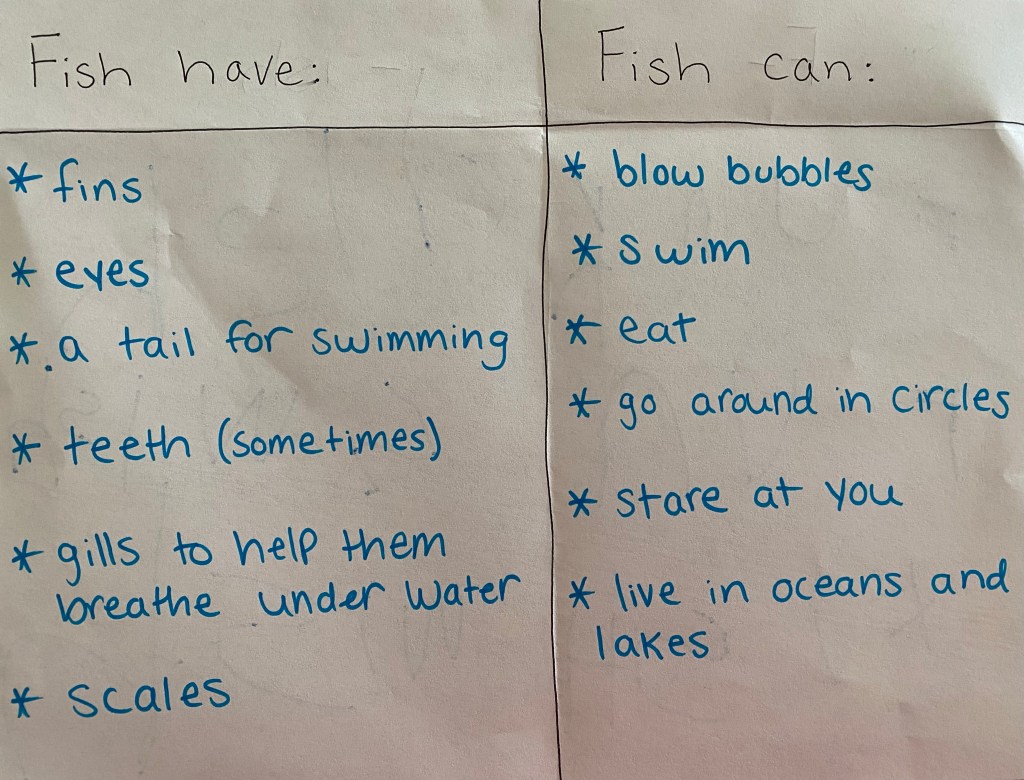 Fish have:
* fins
* eyes
* a tail for swimming
* teeth (sometimes)
* gills to help them
breathe under water
* scales
Fish can:
* blow bubbles
* swim
* eat
* go around in circles
* stare at you
* live in oceans and
lakes